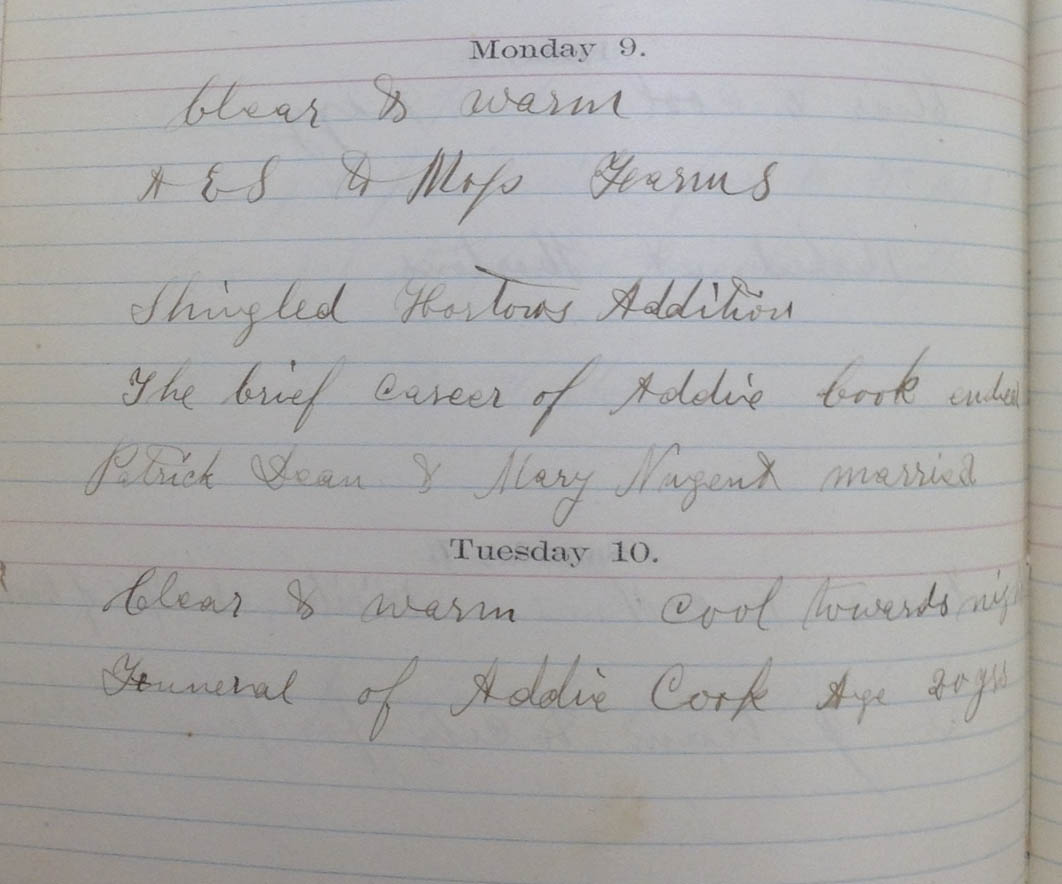 Monday 9.
Clear & warm
A E S & Moss Fearms
Shingled Hortons Addition
The brief career of Addie Cook ended
Patrick Dean & Mary Nugent married
Tuesday 10.
Clear & warm cool towards
Funneral of Addie Cook Age 20 yrs